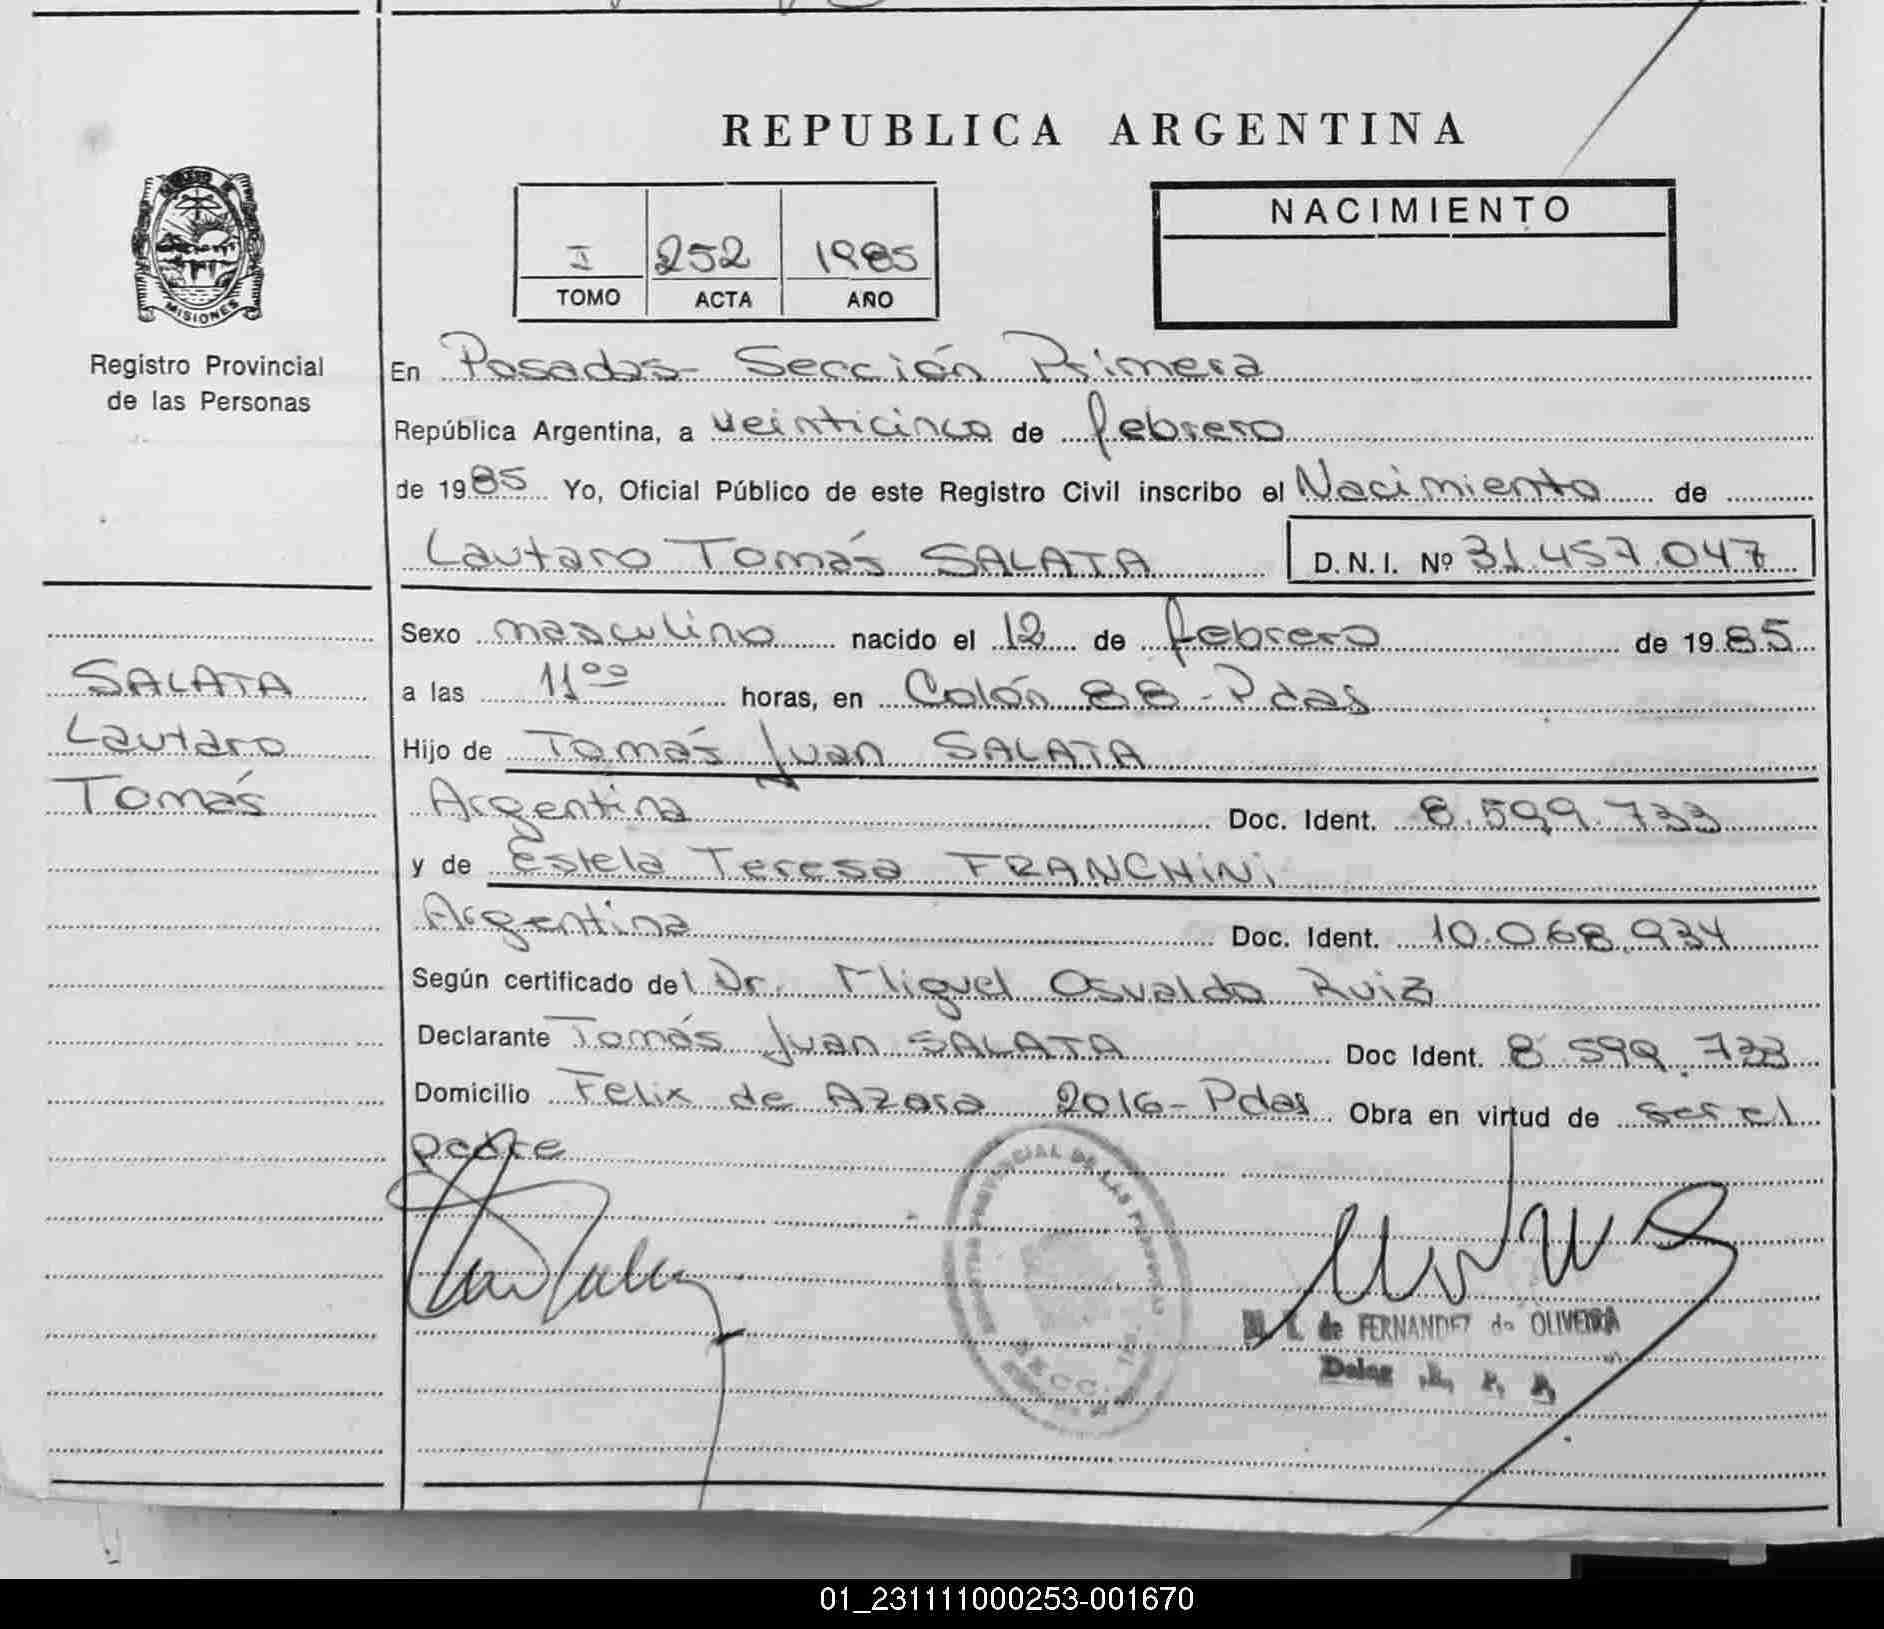 REPUBLICA ARGENTINA
NACIMIENTO
I 252 1985
TOMO ACTA AÑO
MISIONES
Registro Provincial
de las Personas
En Posadas - Sección Primera
República Argentina, a veinticinco de febrero
de 1985 Yo, Oficial Público de este Registro Civil inscribo el Nacimiento de
Lautaro Tomás SALATA D.N.I. Nº 31.457.047
SALATA
Lautaro
Tomás
Sexo masculino nacido el 12 de febrero de 1985
a las 11⁰⁰ horas, en Colón 88 - Pdas
Hijo de Tomás Juan SALATA
Argentina Doc. Ident. 8.599.733
y de Estela Teresa FRANCHINI
Argentina Doc. Ident. 10.068.934
Según certificado del Dr. Miguel Osvaldo Ruiz
Declarante Tomás Juan SALATA Doc Ident. 8.599.733
Domicilio Felix de Azara 2016 - Pdas Obra en virtud de ser el
padre
PROVINCIAL DE LAS
de FERNANDEZ de OLIVEIRA
Deleg
01_231111000253-001670